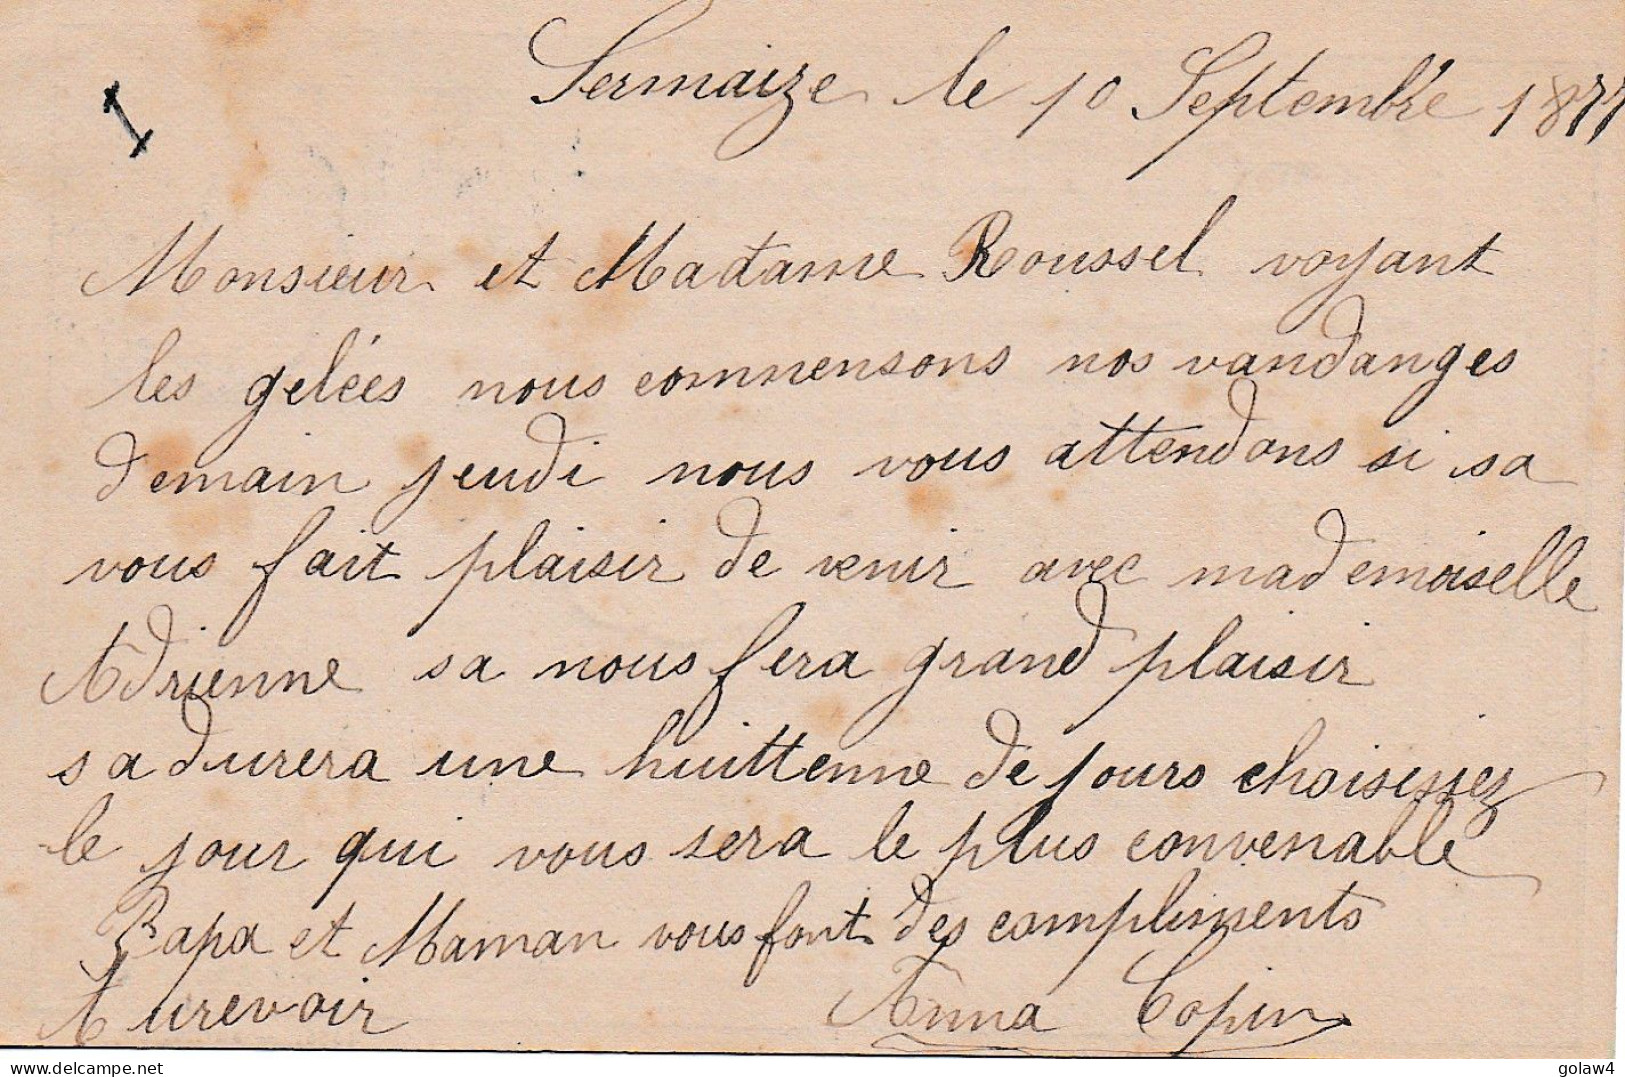 Sermaize le 10 Septembre 1877
Monsieur et Madame Roussel voyant
les gelées nous commensons nos vandanges
demain jeudi nous vous attendons si sa
vous fait plaisir de venir avec mademoiselle
Adrienne sa nous fera grand plaisir
sa durera une huittenne de jours choisissez
le jour qui vous sera le plus convenable
Papa et Maman vous font des compliments
Aurevoir Anna Copin
delcampe.net
golaw4